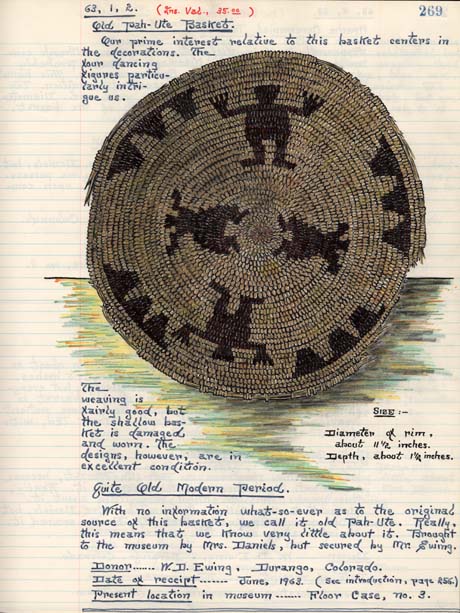 63, 1, 2. (Ins. Val., 35.00) 269
Old Pah-Ute Basket.
Our prime interest relative to this basket centers in
the decorations. The
four dancing
figures particu-
larly intri-
gue us.
The
weaving is
fairly good, but
the shallow bas-
ket is damaged
and worn. The
designs, however, are in
excellent condition.
SIZE :-
Diameter of rim,
about 11 1/2 inches.
Depth, about 1 1/4 inches.
Quite Old Modern Period.
With no information what-so-ever as to the original
source of this basket, we call it old Pah-Ute. Really,
this means that we know very little about it. Brought
to the museum by Mrs. Daniels, but secured by Mr. Ewing.
Donor...... W.D. Ewing, Durango, Colorado.
Date of receipt------- June, 1963. (See introduction, page 255.)
Present location in museum ------- Floor Case, no. 3.